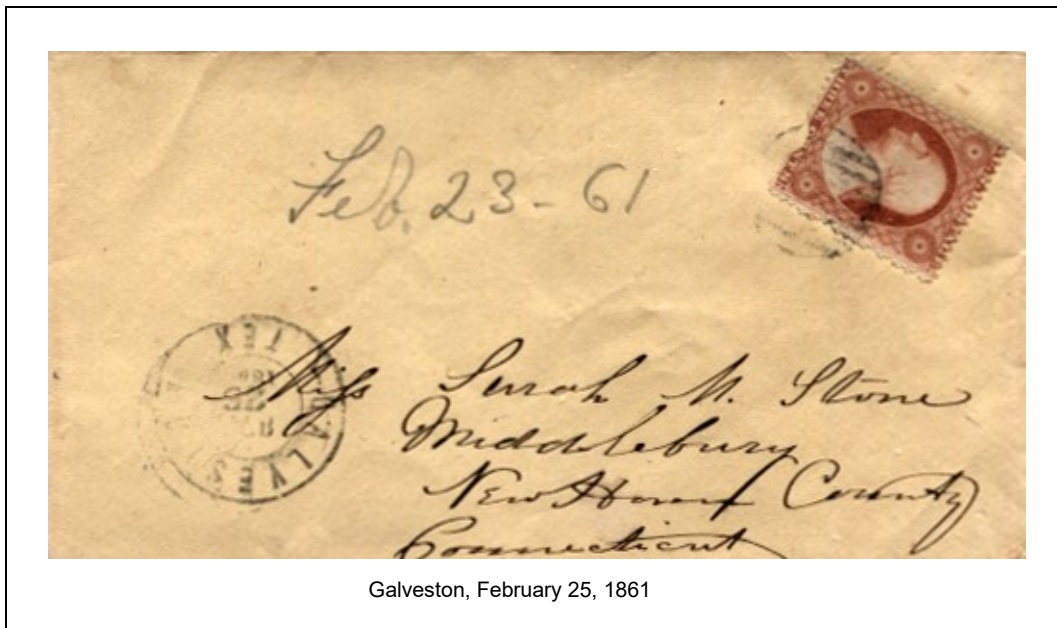 Feb. 23 - 61
TEX
GALVES
Miss Sarah M. Stone
Middlebury
New Haven County
Connecticut
Galveston, February 25, 1861